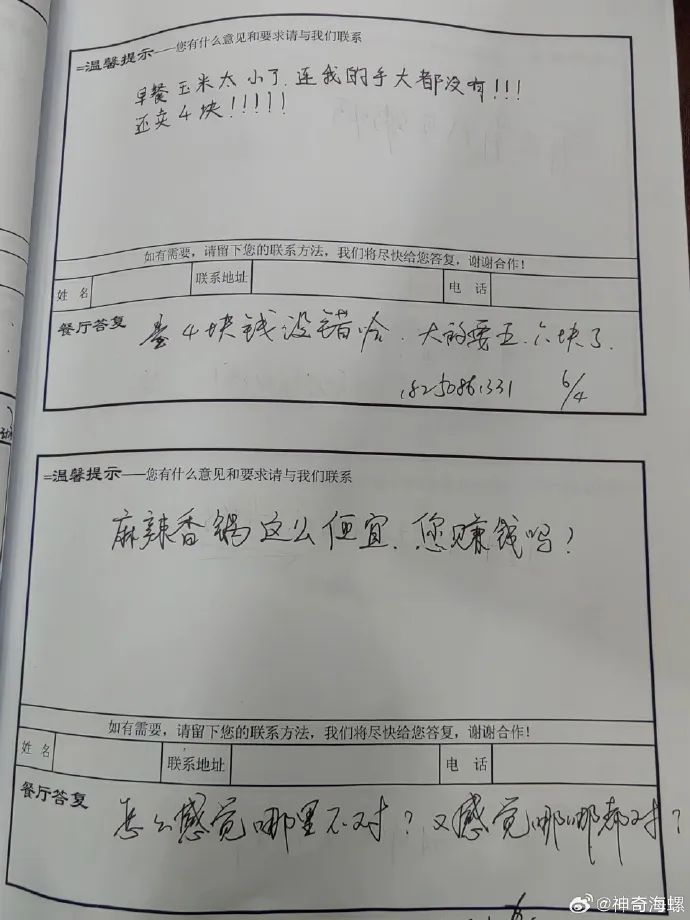 =温馨提示——您有什么意见和要求请与我们联系
早餐玉米太小了,连我的手大都没有!!!
还卖4块!!!!!
如有需要,请留下您的联系方法,我们将尽快给您答复,谢谢合作!
姓 名 联系地址 电 话
餐厅答复 4块钱没错哈.大的要五.六块了.
18250861331 6/4
=温馨提示——您有什么意见和要求请与我们联系
麻辣香锅这么便宜.您赚钱吗?
如有需要,请留下您的联系方法,我们将尽快给您答复,谢谢合作!
姓 名 联系地址 电 话
餐厅答复 怎么感觉哪里不对?又感觉哪哪都对?
@神奇海螺